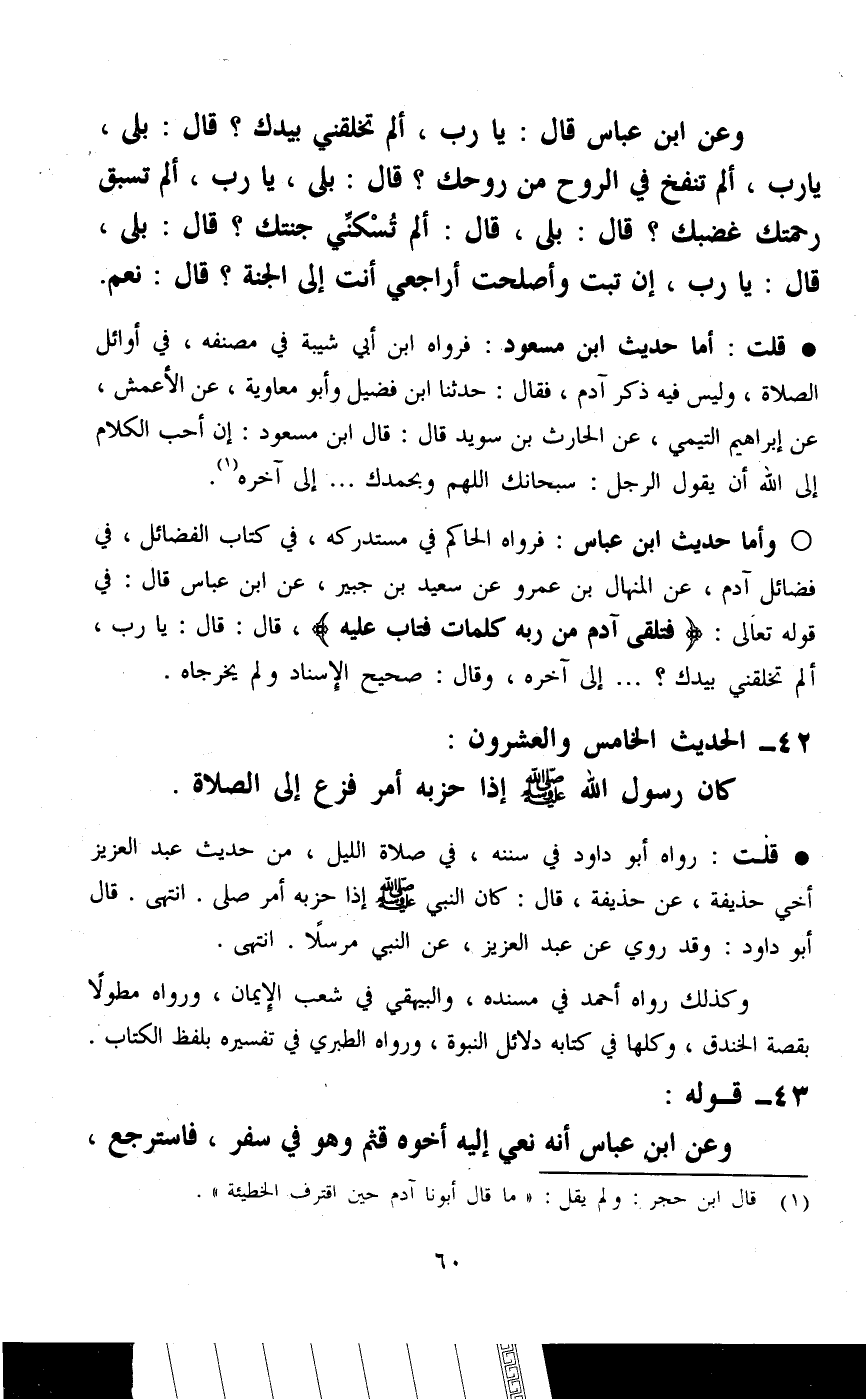 وعن ابن عباس قال : يا رب ، ألم تخلقني بيدك ؟ قال : بلى ،
يارب ، ألم تنفخ في الروح من روحك ؟ قال : بلى ، يا رب ، ألم تسبق
رحمتك غضبك ؟ قال : بلى ، قال : ألم تُسْكنِّي جنتك ؟ قال : بلى ،
قال : يا رب ، إن تبت وأصلحت أراجعي أنت إلى الجنة ؟ قال : نعم.
● قلت : أما حديث ابن مسعود : فرواه ابن أبي شيبة في مصنفه ، في أوائل
الصلاة ، وليس فيه ذكر آدم ، فقال : حدثنا ابن فضيل وأبو معاوية ، عن الأعمش ،
عن إبراهيم التيمي ، عن الحارث بن سويد قال : قال ابن مسعود : إن أحب الكلام
إلى الله أن يقول الرجل : سبحانك اللهم وبحمدك ... إلى آخره(١).
○ وأما حديث ابن عباس : فرواه الحاكم في مستدركه ، في كتاب الفضائل ، في
فضائل آدم ، عن المنهال بن عمرو عن سعيد بن جبير ، عن ابن عباس قال : في
قوله تعالى : ﴿ فتلقى آدم من ربه كلمات فتاب عليه ﴾ ، قال : قال : يا رب ،
ألم تخلقني بيدك ؟ ... إلى آخره ، وقال : صحيح الإسناد ولم يخرجاه .
٤٢ـ الحديث الخامس والعشرون :
كان رسول الله ﷺ إذا حزبه أمر فزع إلى الصلاة .
● قلت : رواه أبو داود في سننه ، في صلاة الليل ، من حديث عبد العزيز
أخي حذيفة ، عن حذيفة ، قال : كان النبي ﷺ إذا حزبه أمر صلى . انتهى . قال
أبو داود : وقد روي عن عبد العزيز ، عن النبي مرسلًا . انتهى .
وكذلك رواه أحمد في مسنده ، والبيهقي في شعب الإيمان ، ورواه مطولًا
بقصة الخندق ، وكلها في كتابه دلائل النبوة ، ورواه الطبري في تفسيره بلفظ الكتاب .
٤٣ـ قـوله :
وعن ابن عباس أنه نعي إليه أخوه قثم وهو في سفر ، فاسترجع ،
(١) قال ابن حجر : ولم يقل : « ما قال أبونا آدم حين اقترف الخطيئة » .
٦٠